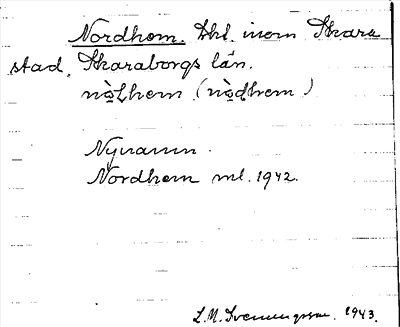 Nordhem. Hd. inom Skara
stad, Skaraborgs län.
Nynamn.
Nordhem ml. 1942.
S.M. Svenungsson. 1943.